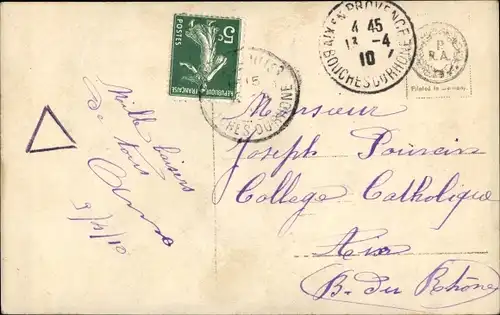 5c
POSTES
REPUBLIQUE FRANÇAISE
15
BOUCHES DU RHONE
AIX EN PROVENCE
4 45
13 -4
10
BOUCHES DU RHONE
P
R.A.
Printed in Germany
Mille baisers
de tous
9/4/10
Monsieur
Joseph Pourcin
College Catholique
Aix
B. du Rhône